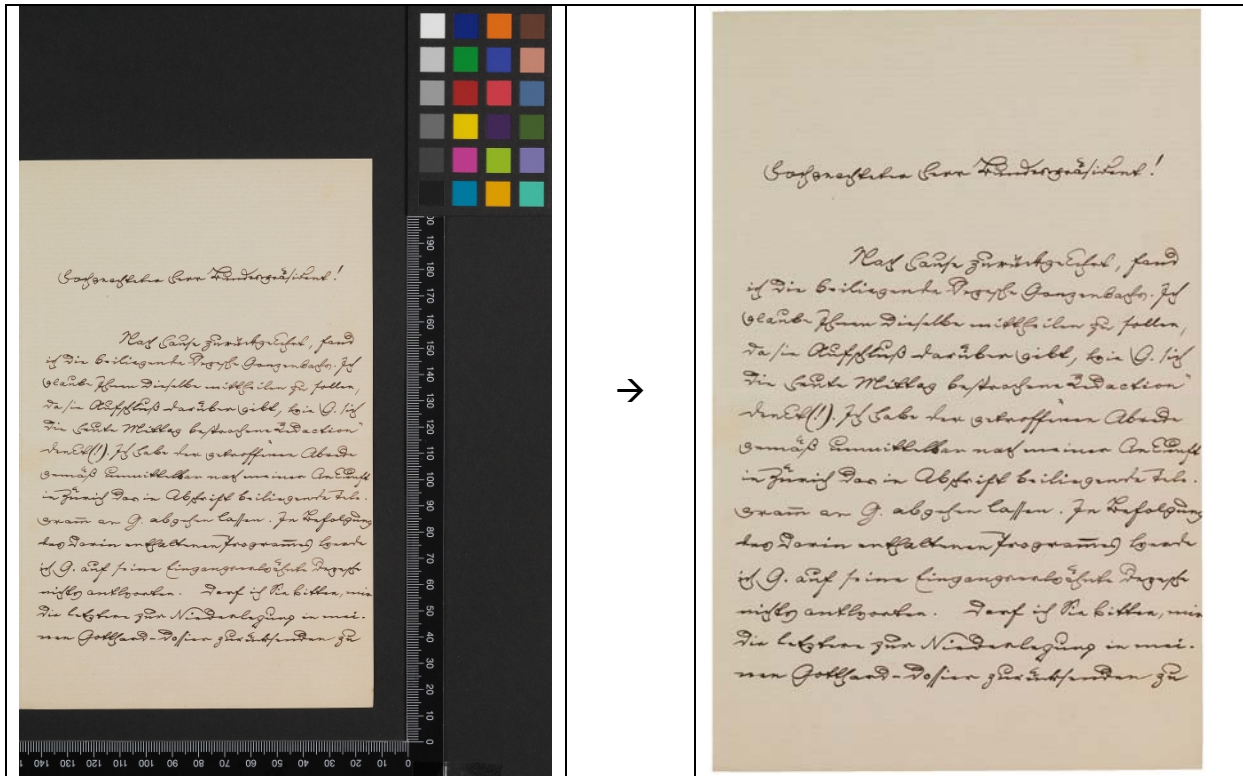 Hochgeachteter Herr Bundespräsident!
Nach Hause zurückgekehrt, fand
ich die beiliegende Depesche Gonzenbachs. Ich
glaube Ihnen dieselbe mittheilen zu sollen,
da sie Aufschluß darüber gibt, wie G. sich
die heute Mittag besprochene Redaction"
denkt(!). Ich habe der getroffenen Abrede
gemäß unmittelbar nach meiner Ankunft
in Zürich das in Abschrift beiliegende Tele-
gram̅ an G. abgehen lassen. In Befolgung
des darin enthaltenen Program̅es werde
ich G. auf seine Eingangserwähnte Depesche
nichts antworten. Darf ich Sie bitten, mir
die letztere zur Niederlegung in mei-
nen Gotthard-Dossier zurücksenden zu
190 180 170 160 150 140 130 120 110 100 90 80 70 60 50 40 30 20 10 0
140 130 120 110 100 90 80 70 60 50 40 30 20 10 0
→
Hochgeachteter Herr Bundespräsident!
Nach Hause zurückgekehrt, fand
ich die beiliegende Depesche Gonzenbachs. Ich
glaube Ihnen dieselbe mittheilen zu sollen,
da sie Aufschluß darüber gibt, wie G. sich
die heute Mittag besprochene Redaction"
denkt(!). Ich habe der getroffenen Abrede
gemäß unmittelbar nach meiner Ankunft
in Zürich das in Abschrift beiliegende Tele-
gram̅ an G. abgehen lassen. In Befolgung
des darin enthaltenen Program̅es werde
ich G. auf seine Eingangserwähnte Depesche
nichts antworten. Darf ich Sie bitten, mir
die letztere zur Niederlegung in mei-
nen Gotthard-Dossier zurücksenden zu